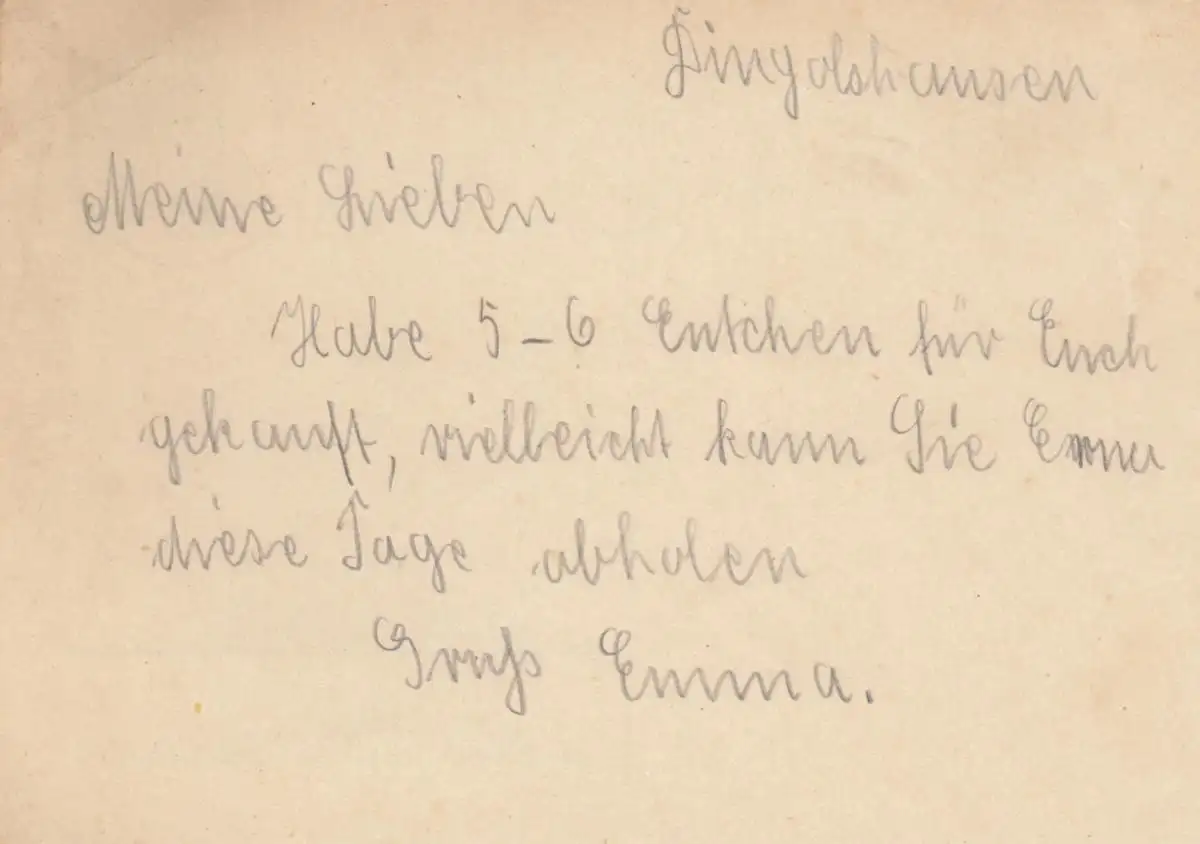 Dingolshausen
Meine Lieben
Habe 5-6 Entchen für Euch
gekauft, vielleicht kann Sie
diese Tage abholen
Gruß Emma.